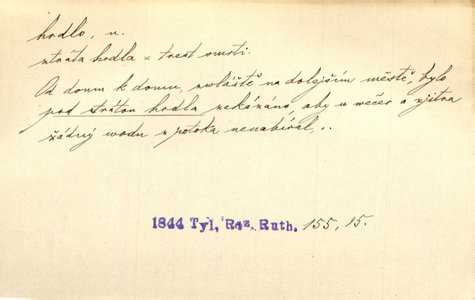 hrdlo, n.
ztráta hrdla = trest smrti.
Od domu k domu, zvláště na dolejším městě, bylo
pod ztrátou hrdla zakázáno, aby u večer a zjitra
žádný vodu z potoka nenabíral,..
1844 Tyl, Roz. Ruth. 155, 15.